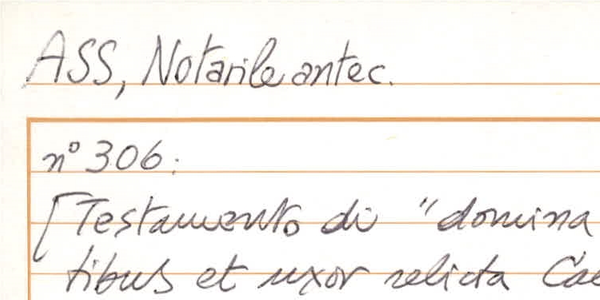 ASS, Notarile antec.
n° 306:
[Testamento di "domina
tibus et uxor relicta